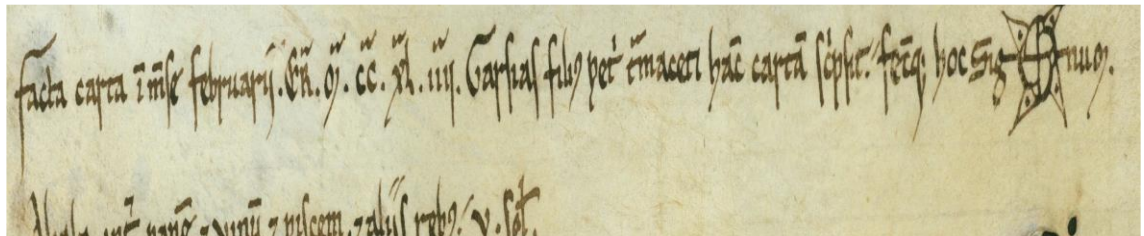 facta carta ī m̄se februarij. Er̃. ꝳ. c̃c̃. x̃l. iiij. Garsias filiꝰ pet͛ t͛maceti hāc cartā sc͛psit. ⁊ fec̄q; hoc Sig num.
pane ⁊ vinū ⁊ piscem. ⁊ aliis rebꝰ. v. sol.